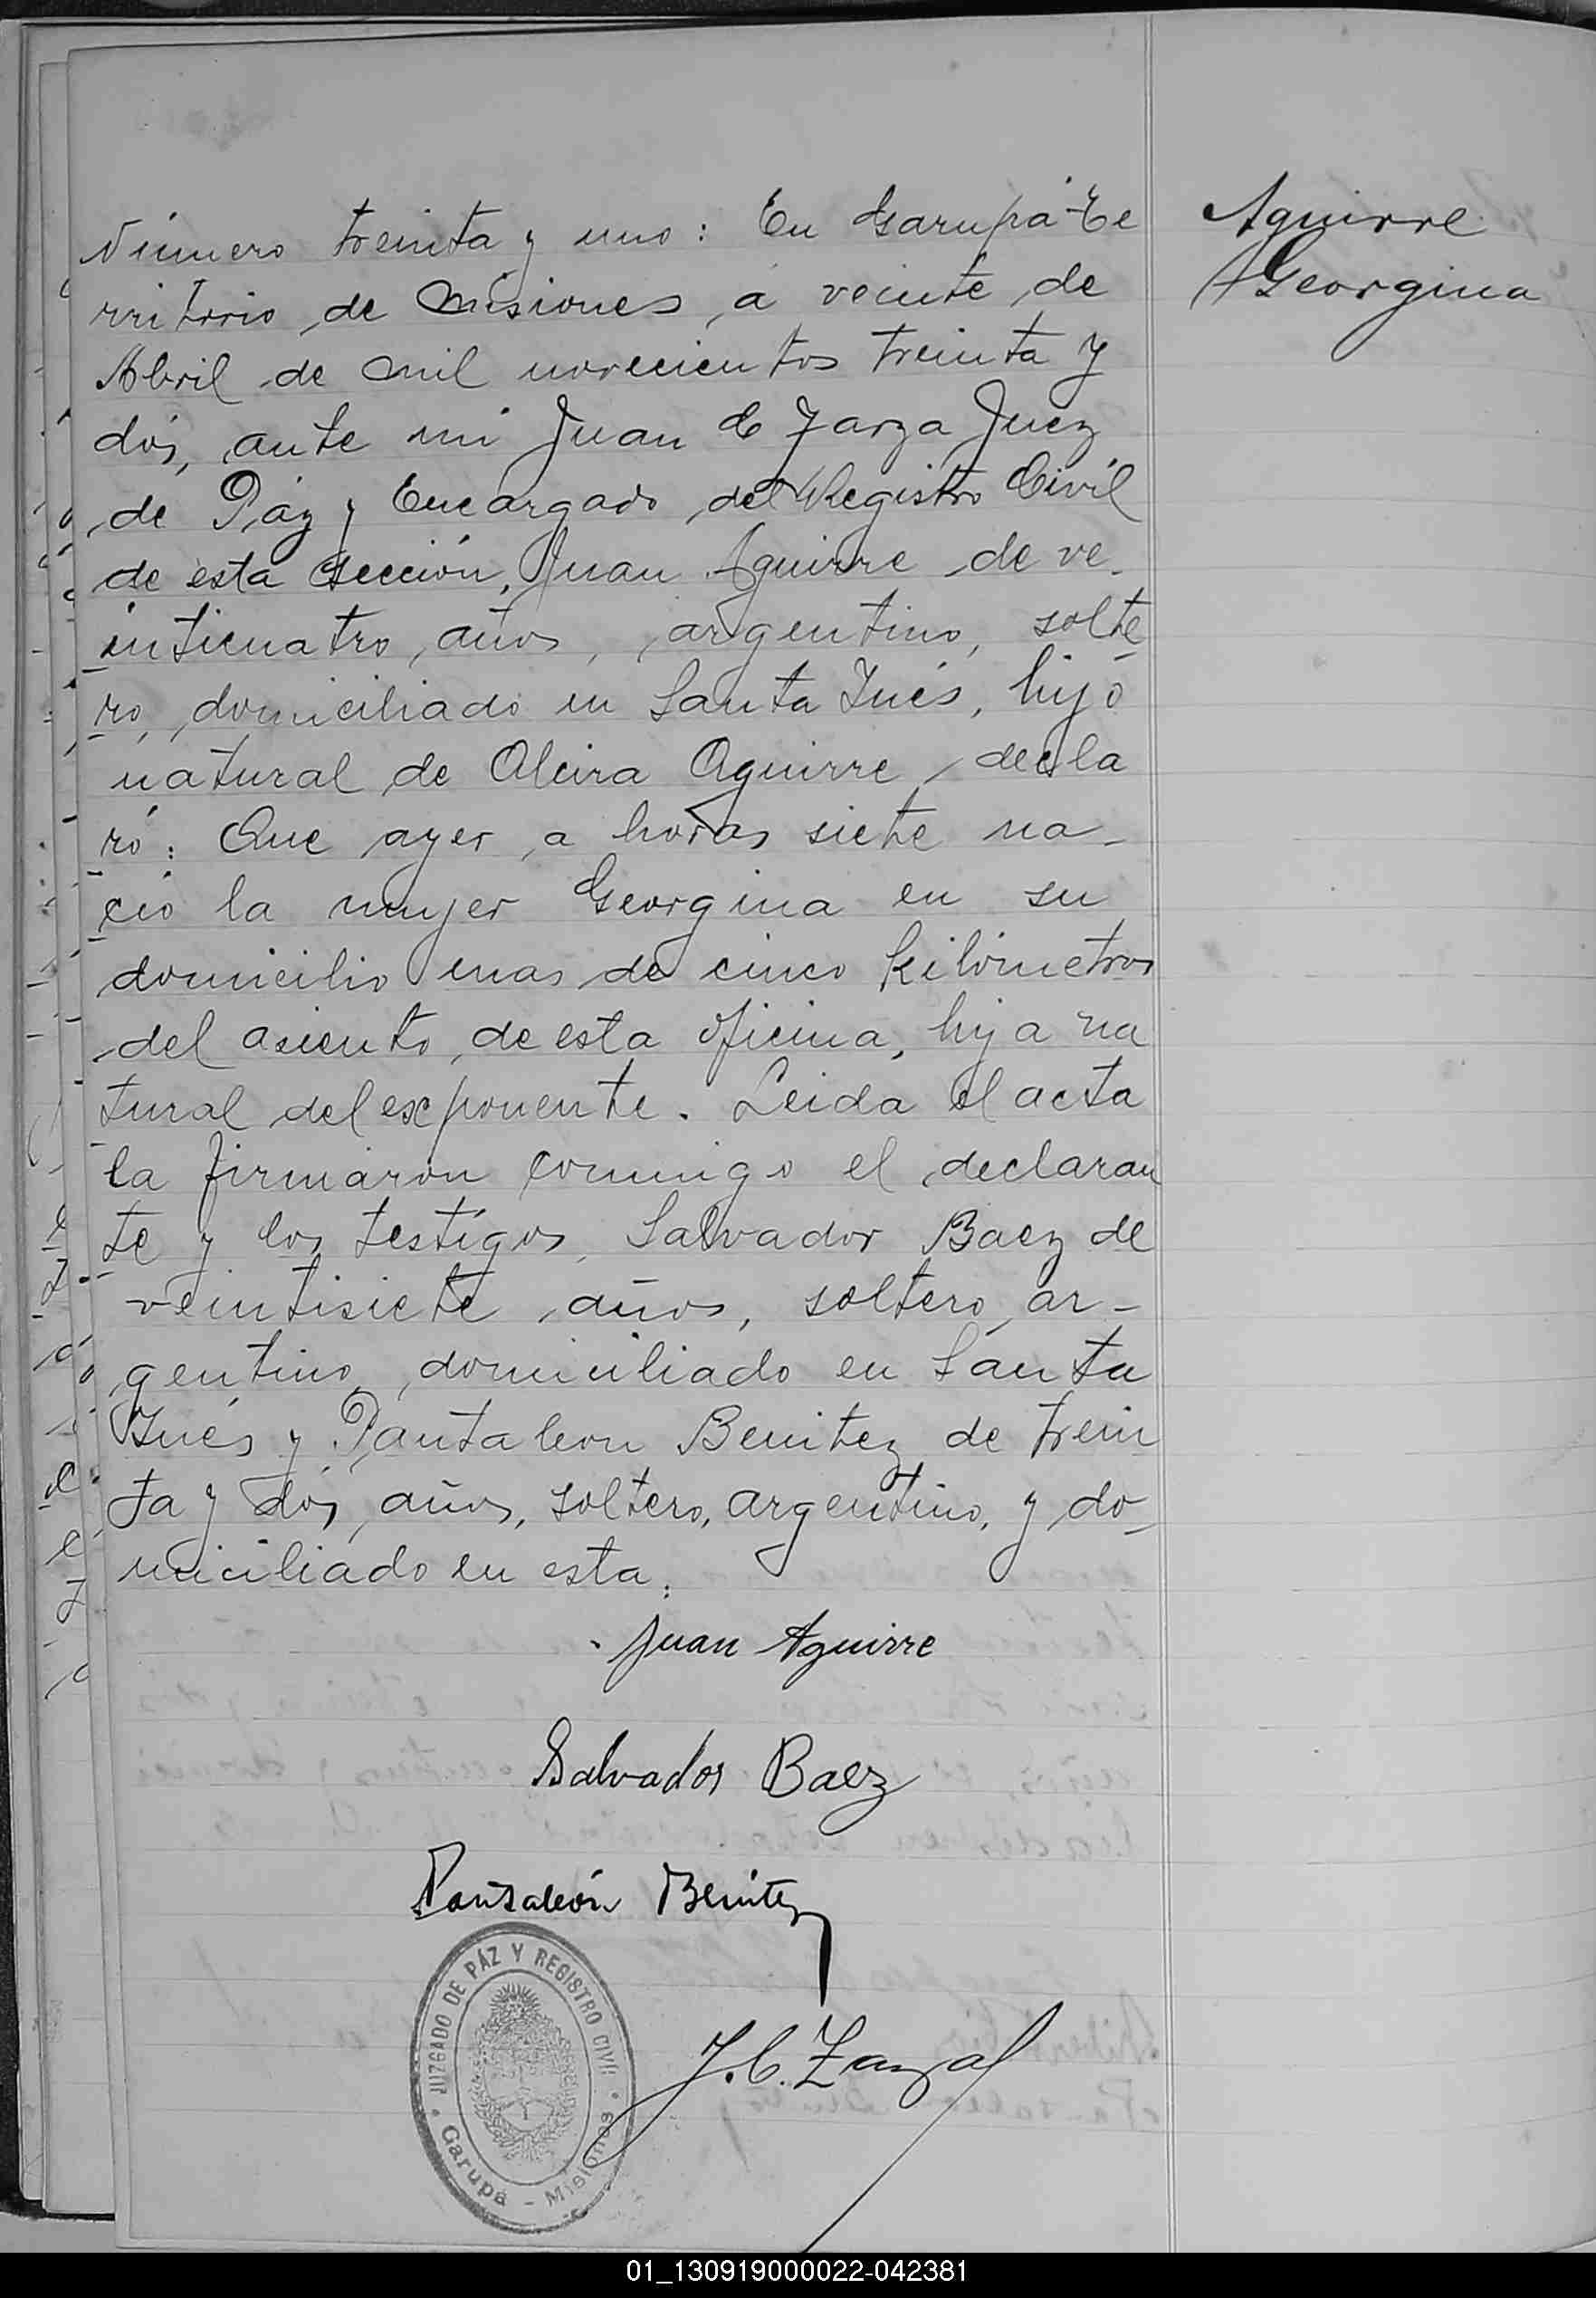 Número treinta y uno: En Garupá-Te
rritorio de Misiones, a veinte de
Abril de mil novecientos treinta y
dós, ante mi Juan C Zarza Juez
de Páz y Encargado del Registro Civil
de esta Sección, Juan Aguirre de ve-
inticuatro años, argentino, solte
ro, domiciliado en Santa Inés, hijo
natural de Alcira Aguirre, decla
ró: Que ayer a horas siete na-
ció la mujer Georgina en su
domicilio mas de cinco kilómetros
del asiento de esta oficina, hija na
tural del exponente. Leida el acta
la firmáron conmigo el declaran
te y los testígos, Salvador Baez de
veintisiete años, soltero, ar-
gentino, domiciliado en Santa
Inés y Pantaleon Benitez de trein
ta y dós años, soltero, argentino, y do-
miciliado en esta.
Juan Aguirre
Salvador Baez
Pantaleón Benitez
J. C. Zarza
JUZGADO DE PÁZ Y REGISTRO CIVIL
Garupá - Misiones
Aguirre
Georgina
01_130919000022-042381